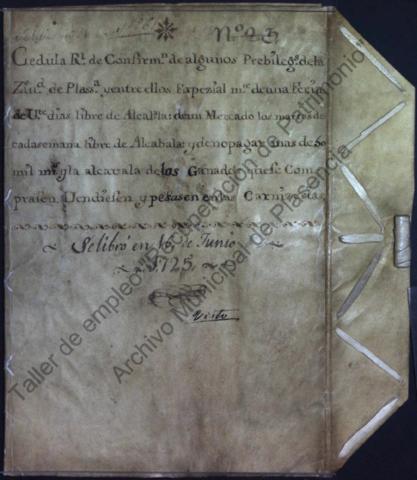 Nº 23
Cedula Rˡ. de Confirmⁿ. de algunos Prebilegˢ. de la
Ziuᵈ. de Plasᵃ. y entre ellos Expezial mᵗᵉ de una Feria
de Vᵗᵉ dias libre de Alcaula: de un Mercado los martes de
cada semana libre de Alcabala: y de no pagar mas de 80
mil mrˢ y la alcavala de los Ganados que se Com
prasen Vendiesen y pesasen en las Carnizerias
Se libro en 16 de Junio
de 1725
Visto
Taller de empleo "Recuperación de Patrimonio"
Archivo Municipal de Plasencia